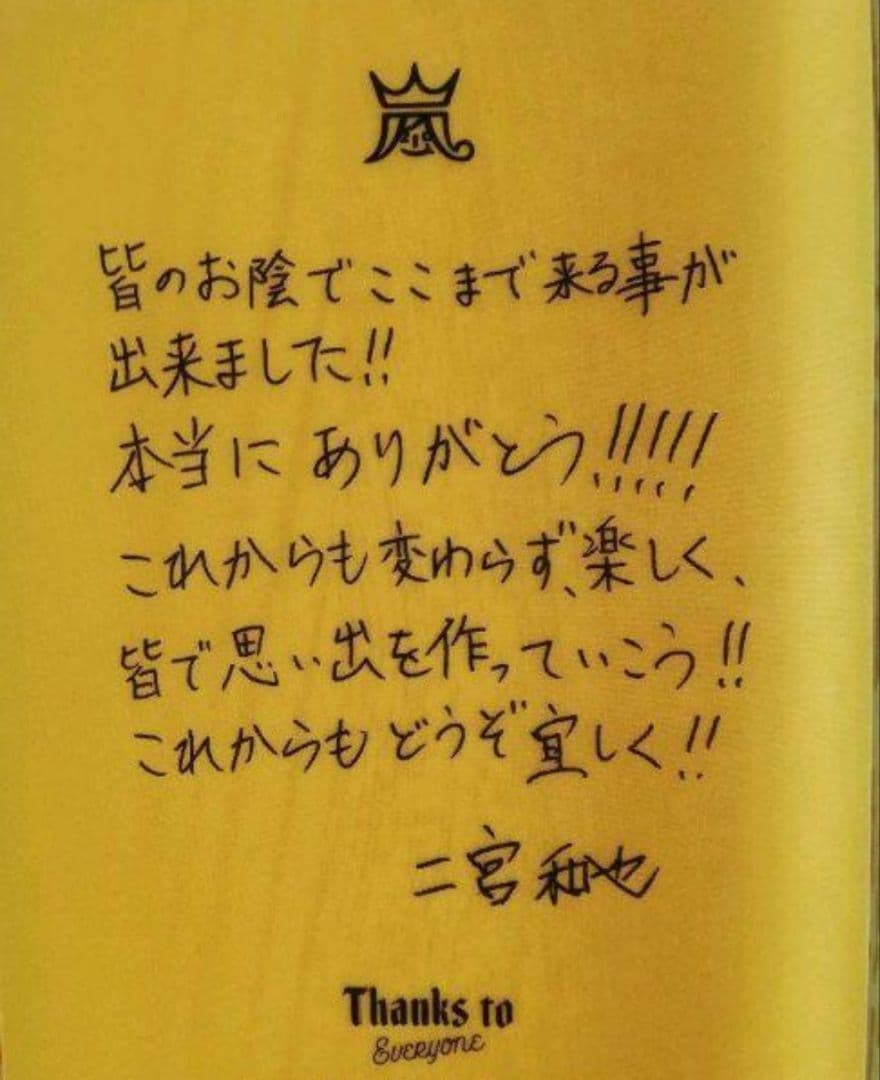 嵐
皆のお陰でここまで来る事が
出来ました!!
本当に ありがとう!!!!!
これからも変わらず、楽しく、
皆で思い出を作っていこう!!
これからもどうぞ宜しく!!
二宮和也
Thanks to
Everyone